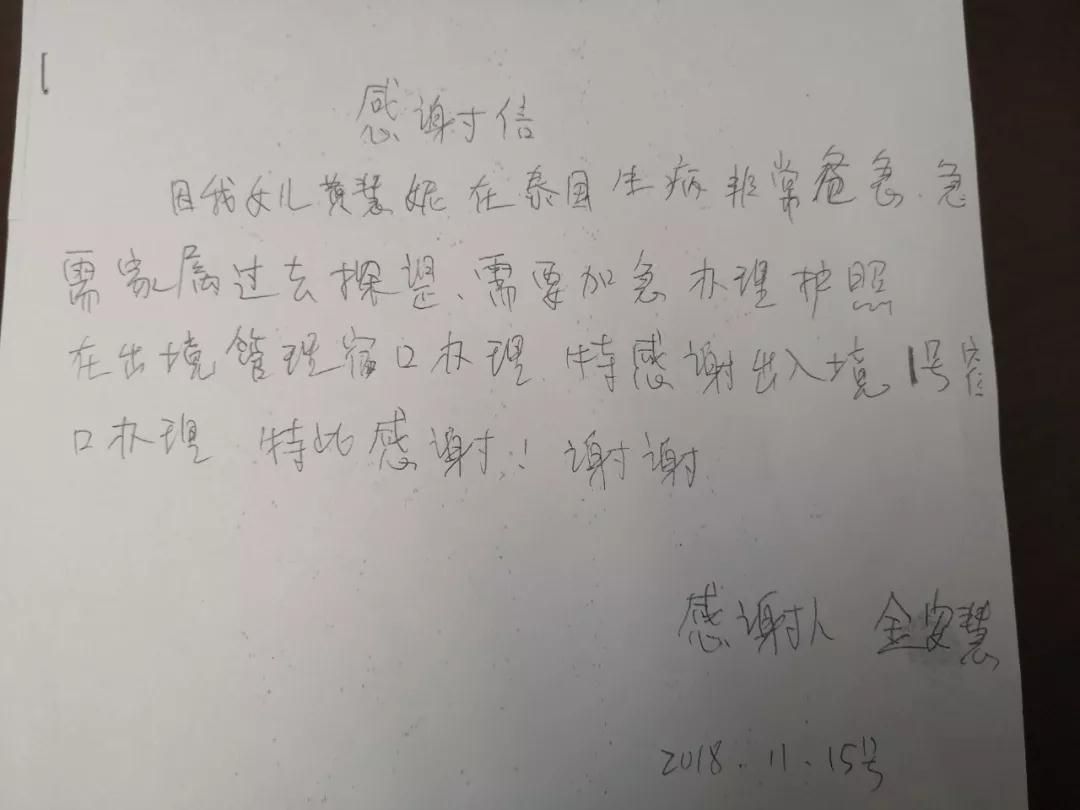 感谢信
因我女儿黄慧妮在泰国生病非常危急、急
需家属过去探望、需要加急办理护照
在出境管理窗口办理、特感谢出入境1号窗
口办理 特此感谢！谢谢
感谢人 金安慧
2018.11.15号